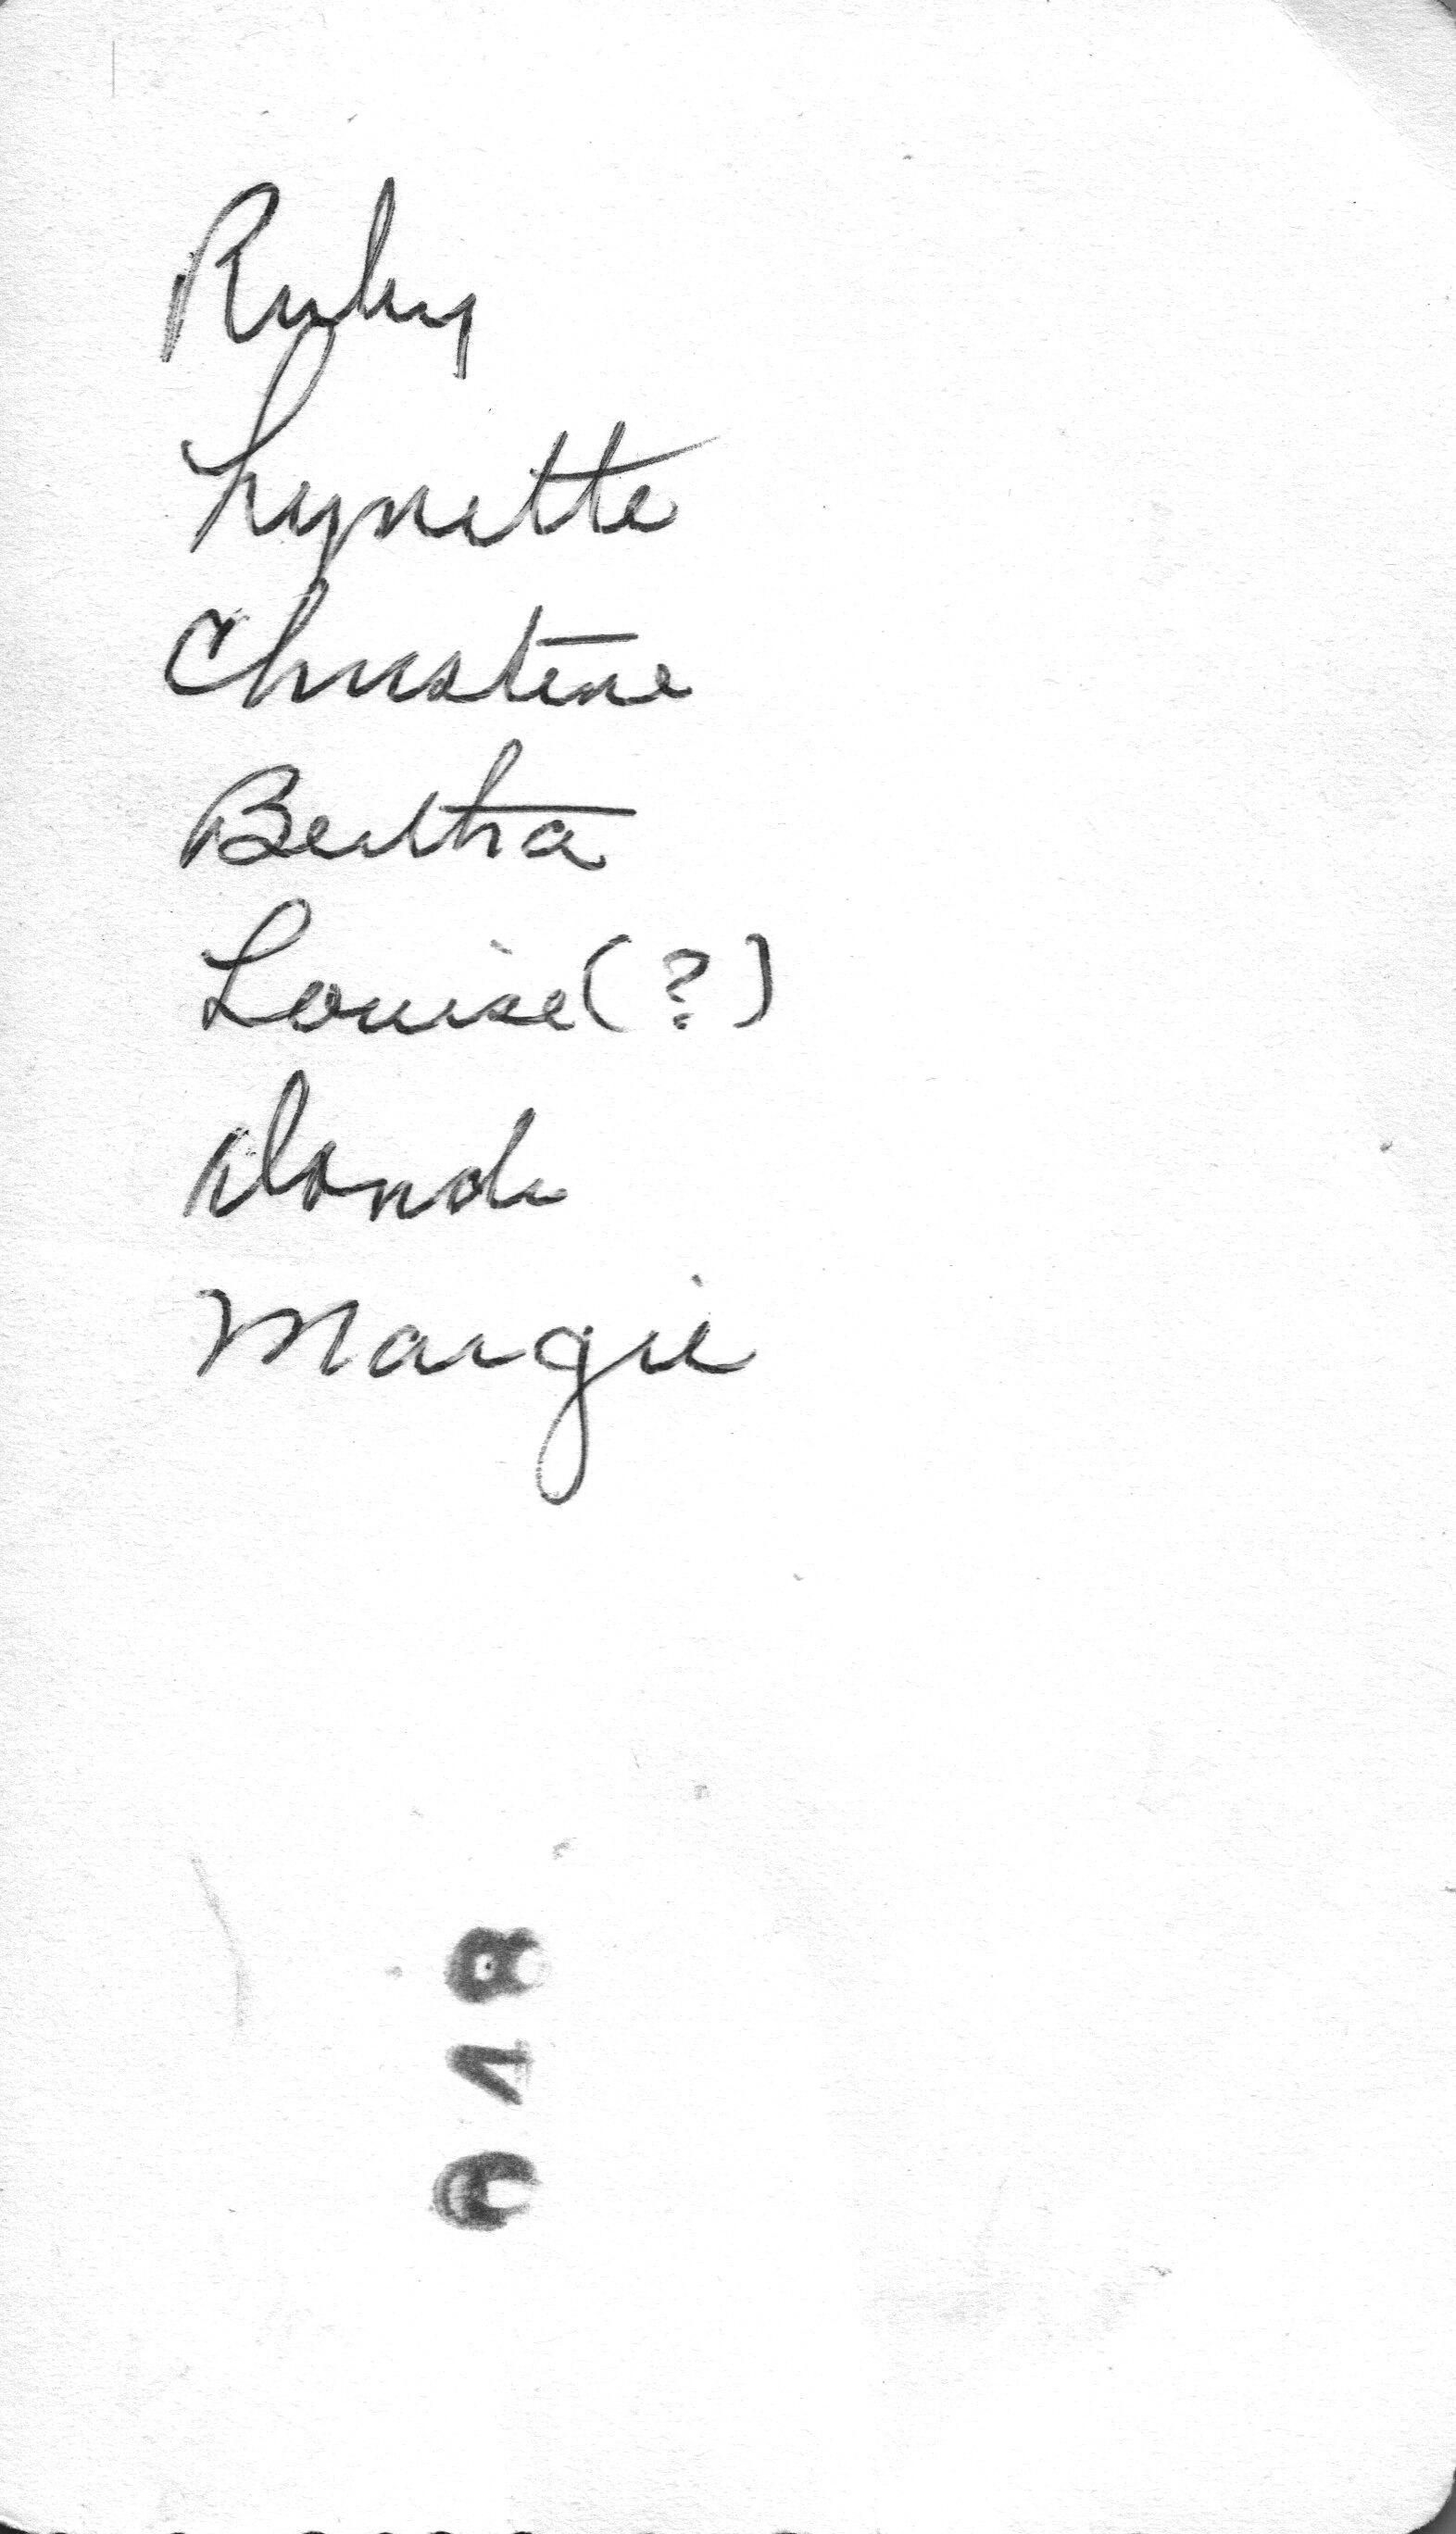 Ruby
Lynette
Christine
Bertha
Louise (?)
Margie
048